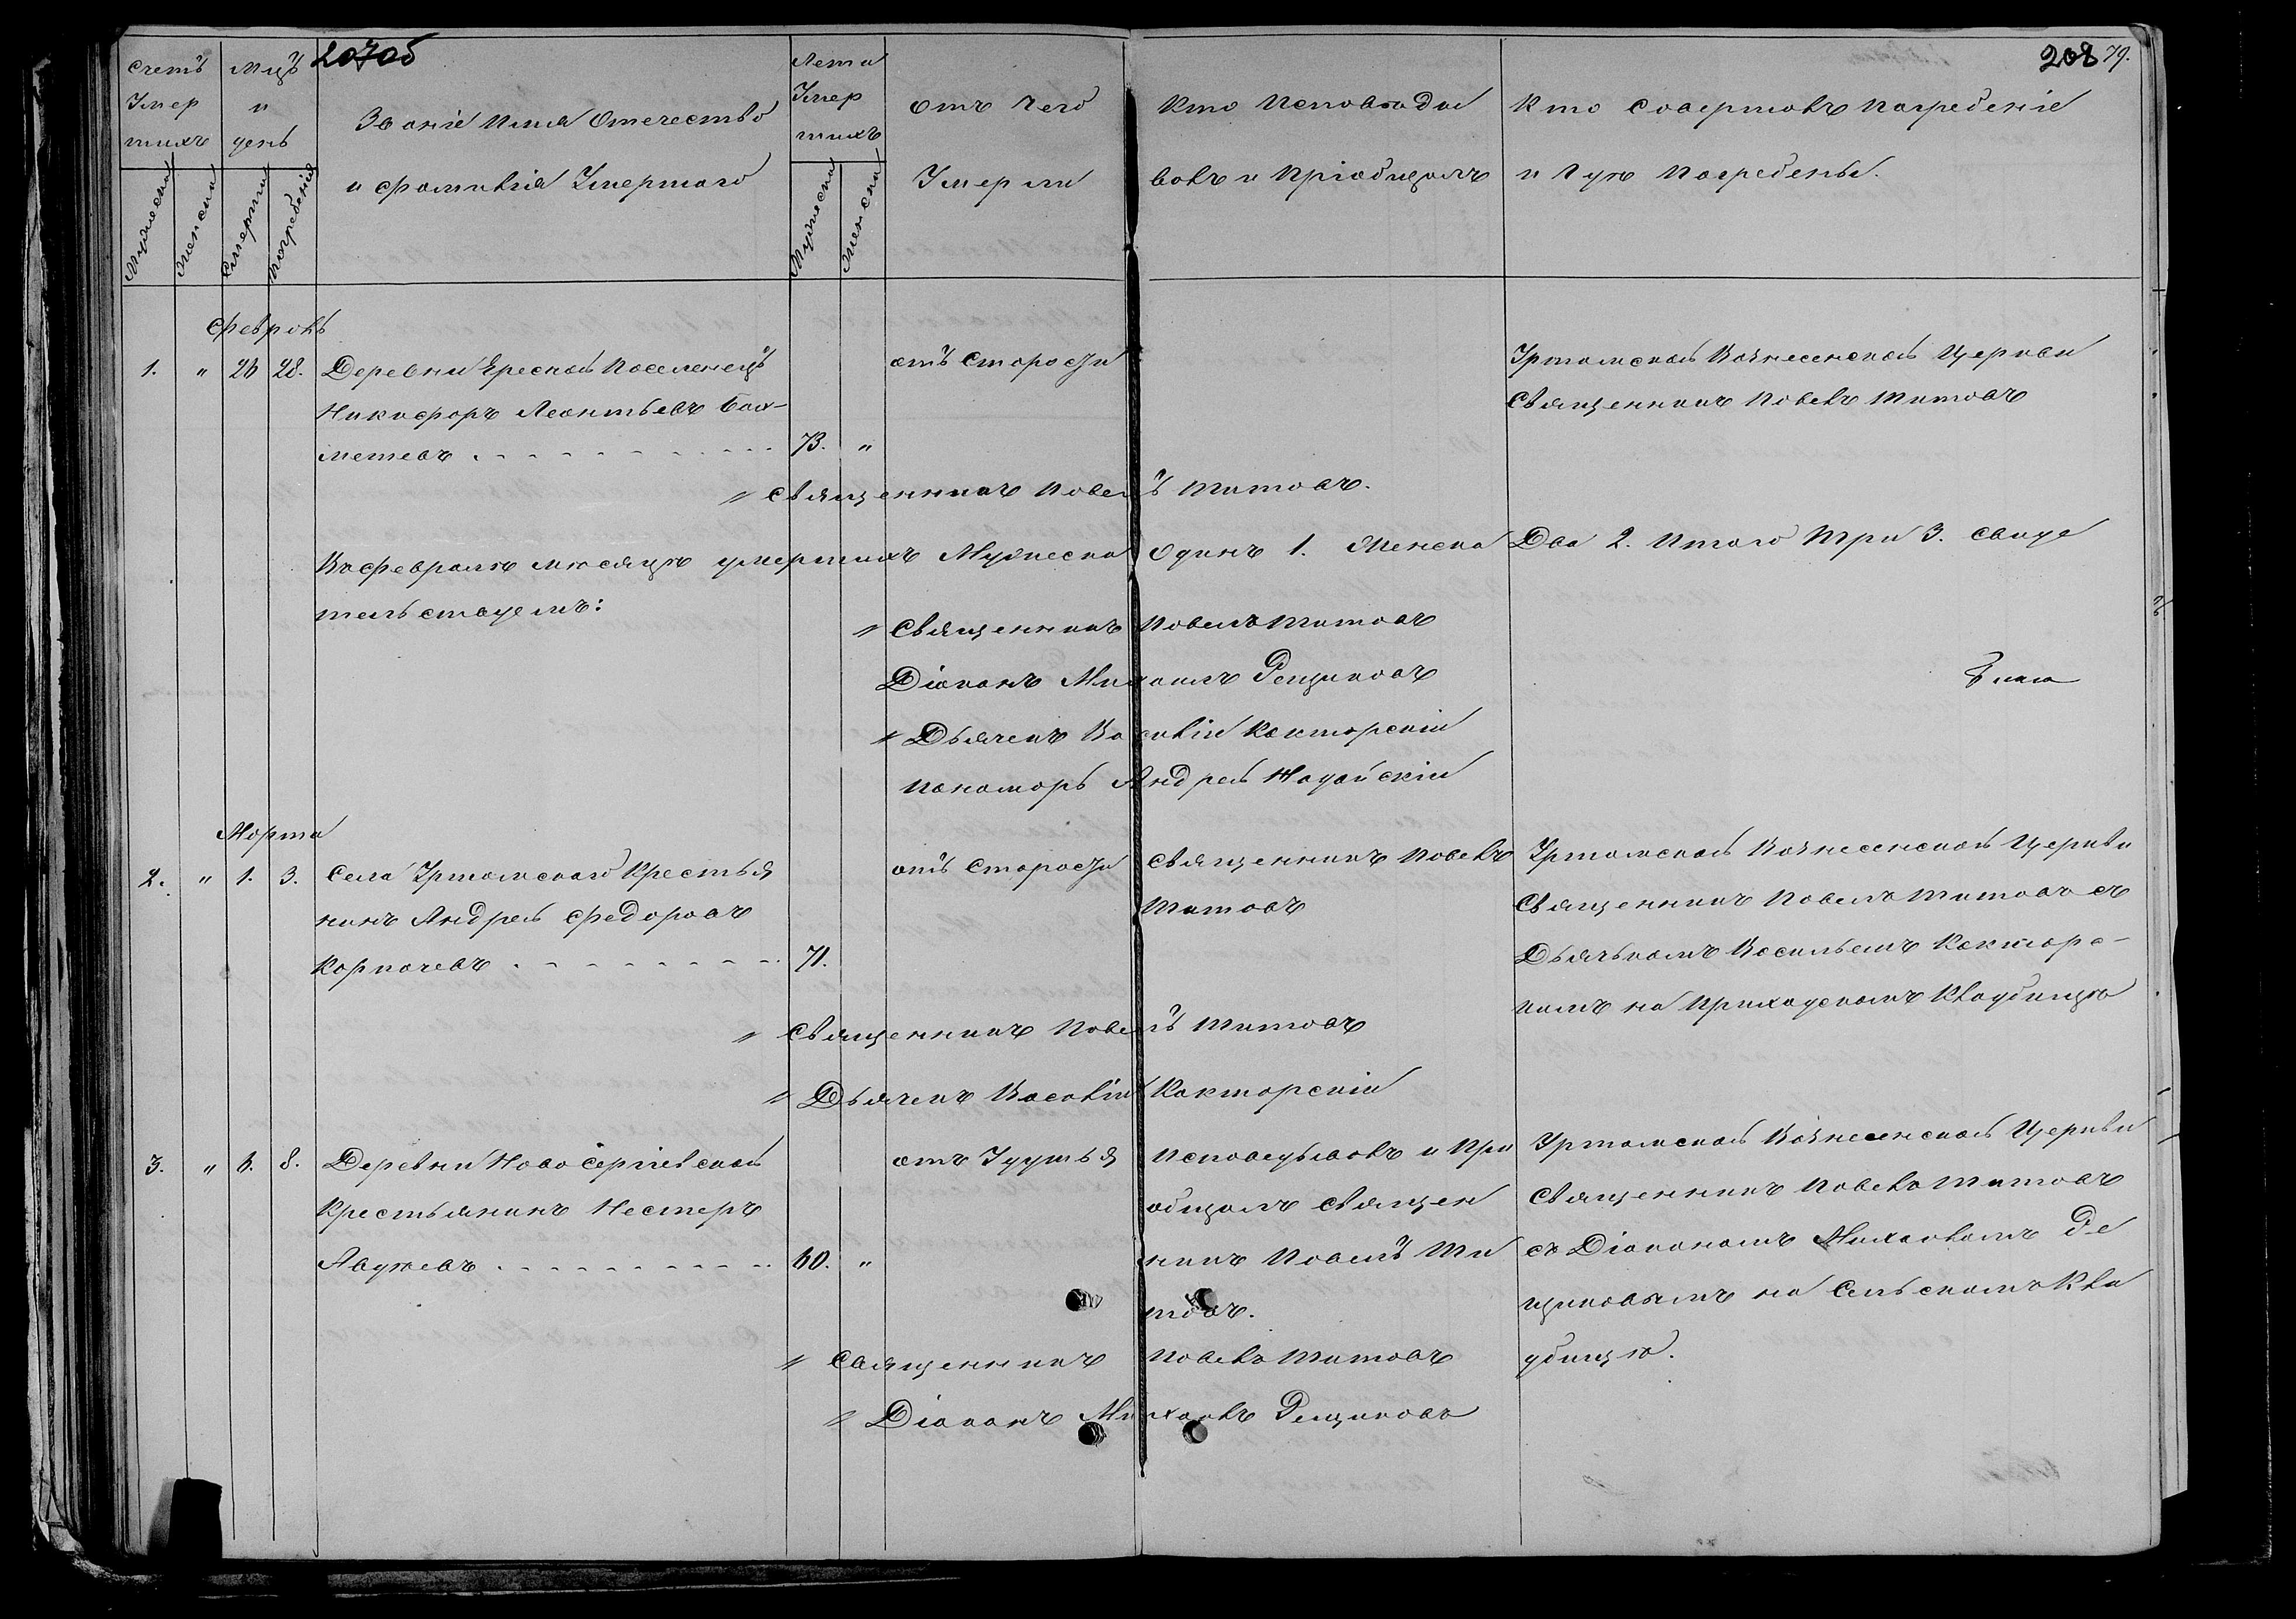 207об
208 79.
Счетъ Умер шихъ
Мцъ и день
Званіе Имя Отечество
и фамилія Умершаго
Лета Умер шихъ
Отъ чего
Умерли
Кто Исповѣды
валъ и Пріобщалъ
Кто Совершалъ Погребеніе
и Гдѣ Погребены.
Мужеска
Женска
Смерти
Погребенія
Мужеска
Женска
Февраль
1. " 26 28. Деревни Ерской Поселенецъ
Никифоръ Леонтьевъ Бах-
метевъ 73. "
отъ Старости
Уртамской Вознесенской Церкви
Священникъ Павелъ Титовъ
Священникъ Павелъ Титовъ.
Въ Февралѣ мѣсяцѣ умершихъ Мужеска Одинъ 1. Женска Два 2. Итого Три 3. Свиде
тельствуемъ:
Священникъ Павелъ Титовъ
Діаконъ Михаилъ Рещиковъ
Дьячекъ Василій Кокторскій
Пономарь Андрей
Марта
2. " 1. 3. Села Уртамскаго Крестья
нинъ Андрей Федоровъ
Корпачевъ 71.
отъ Старости
Священникъ Павелъ
Титовъ
Уртамской Вознесенской Церкви
Священникъ Павелъ Титовъ съ
Дьячкомъ Васильемъ Кокторс-
кимъ на Приходскомъ Кладбищѣ
Священникъ Павелъ Титовъ
Дьячекъ Василій Кокторскій
3. " 6. 8. Деревни Ново Сергіевской
Крестьянинъ Нестеръ
Авдѣевъ 60. "
отъ Удушья
Исповедывалъ и При
общалъ Священ
никъ Павелъ Ти
товъ.
Уртамской Вознесенской Церкви
Священникъ Павелъ Титовъ
съ Діакономъ Михаиломъ Ре
щиковымъ на Сельскомъ Кла
дбищѣ.
Священникъ Павелъ Титовъ
Діаконъ Михаилъ Рещиковъ